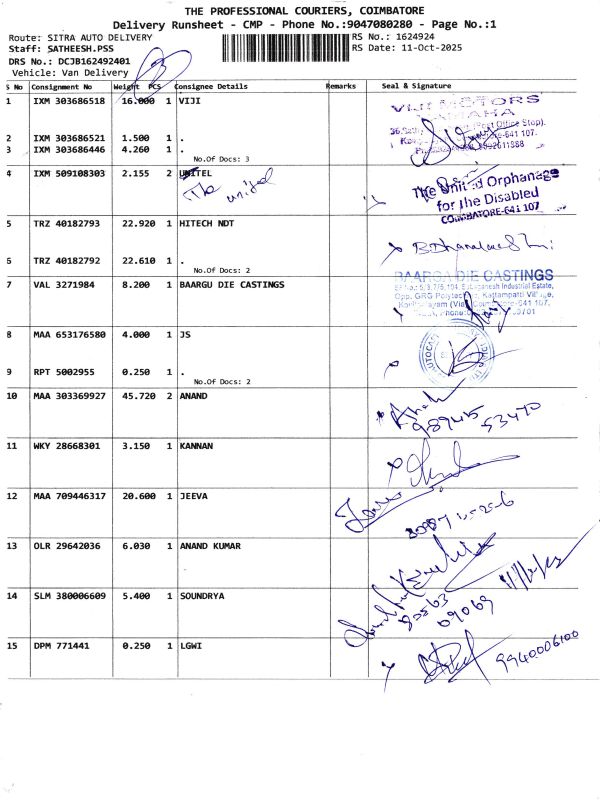 THE PROFESSIONAL COURIERS, COIMBATORE
Delivery Runsheet - CMP - Phone No.:9047080280 - Page No.:1
Route: SITRA AUTO DELIVERY
Staff: SATHEESH.PSS
DRS No.: DCJB162492401
Vehicle: Van Delivery
RS No.: 1624924
RS Date: 11-Oct-2025
S No Consignment No Weight PCS Consignee Details Remarks Seal & Signature
1 IXM 303686518 16.000 1 VIJI
VIJI MOTORS
YAMAHA
(Post Office Stop),
2 IXM 303686521 1.500 1 .
3 IXM 303686446 4.260 1 .
No.Of Docs: 3
4 IXM 509108303 2.155 2 UNITEL
The united
The United Orphanage
for the Disabled
COIMBATORE-641 107
5 TRZ 40182793 22.920 1 HITECH NDT
6 TRZ 40182792 22.610 1 .
No.Of Docs: 2
7 VAL 3271984 8.200 1 BAARGU DIE CASTINGS
BAARGA DIE CASTINGS
Ganesh Industrial Estate,
Opp. GRG Polytechnic, Kattampatti Village,
8 MAA 653176580 4.000 1 JS
9 RPT 5002955 0.250 1 .
No.Of Docs: 2
10 MAA 303369927 45.720 2 ANAND
53470
11 WKY 28668301 3.150 1 KANNAN
12 MAA 709446317 20.600 1 JEEVA
13 OLR 29642036 6.030 1 ANAND KUMAR
14 SLM 380006609 5.400 1 SOUNDRYA
80563
09069
15 DPM 771441 0.250 1 LGWI
9940006100